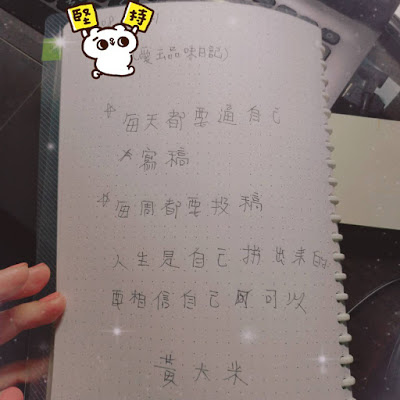 堅持
愛出品味日記)
* 每天都要逼自己
寫稿
* 每周都要投稿
人生是自己拚出來的
要相信自己可以
黃大米